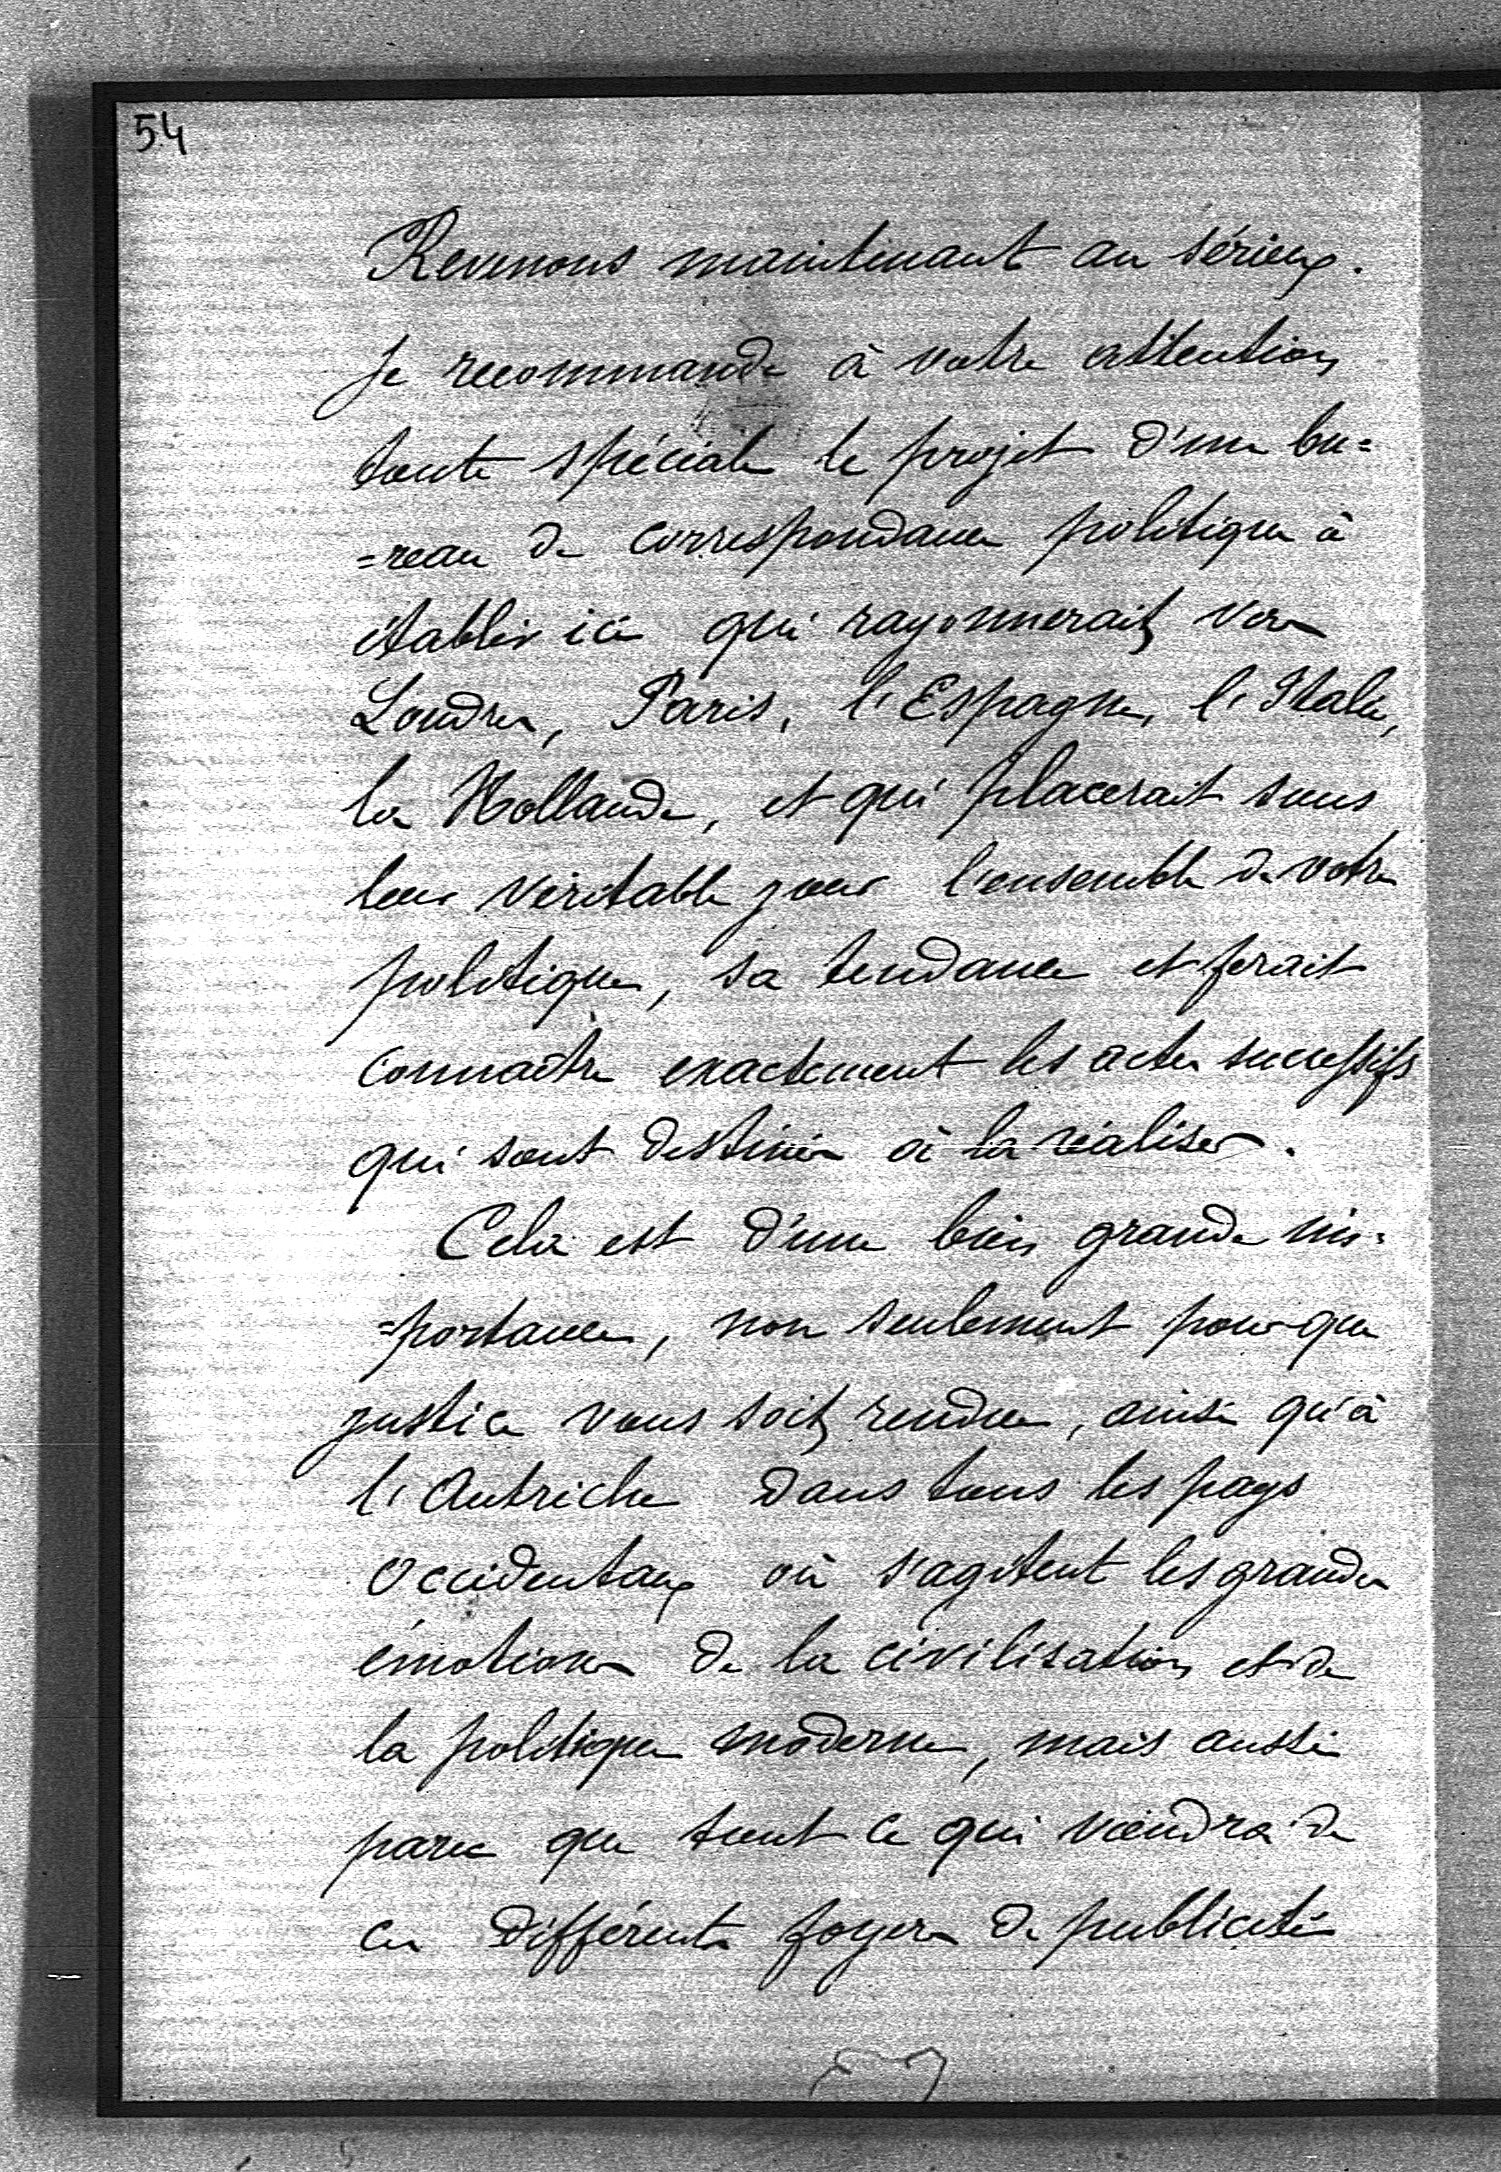 54
Revenons maintenant au sérieux.
Je recommande à votre attention
toute spéciale le projet d'un bu=
=reau de correspondance politique à
établir ici qui rayonnerait vers
Londres, Paris, l'Espagne, l'Italie,
la Hollande, et qui placerait sous
leur véritable jour l'ensemble de votre
politique, sa tendance et ferait
connaître exactement les actes successifs
qui sont destinés à la réaliser.
Cela est d'une bien grande im=
=portance, non seulement pour que
justice vous soit rendue, ainsi qu'à
l'Autriche dans tous les pays
occidentaux où s'agitent les grandes
émotions de la civilisation et de
la politique moderne, mais aussi
parce que tout ce qui viendra de
ces différents foyers de publicité